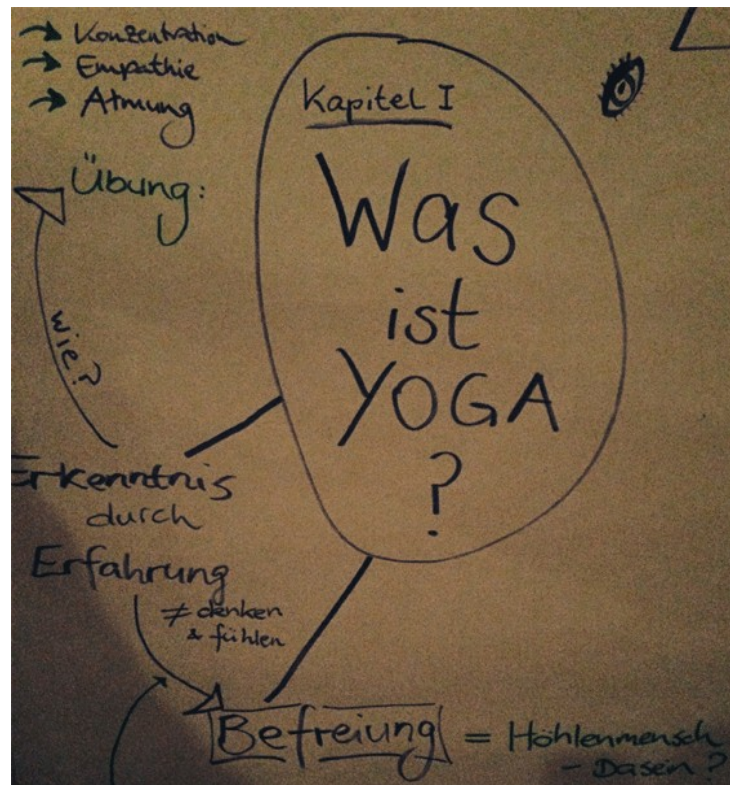 → Konzentration
→ Empathie
→ Atmung
Übung:
wie?
Kapitel I
Was
ist
YOGA
?
Erkenntnis
durch
Erfahrung
≠ denken
& fühlen
Befreiung = Höhlenmensch
- Dasein?